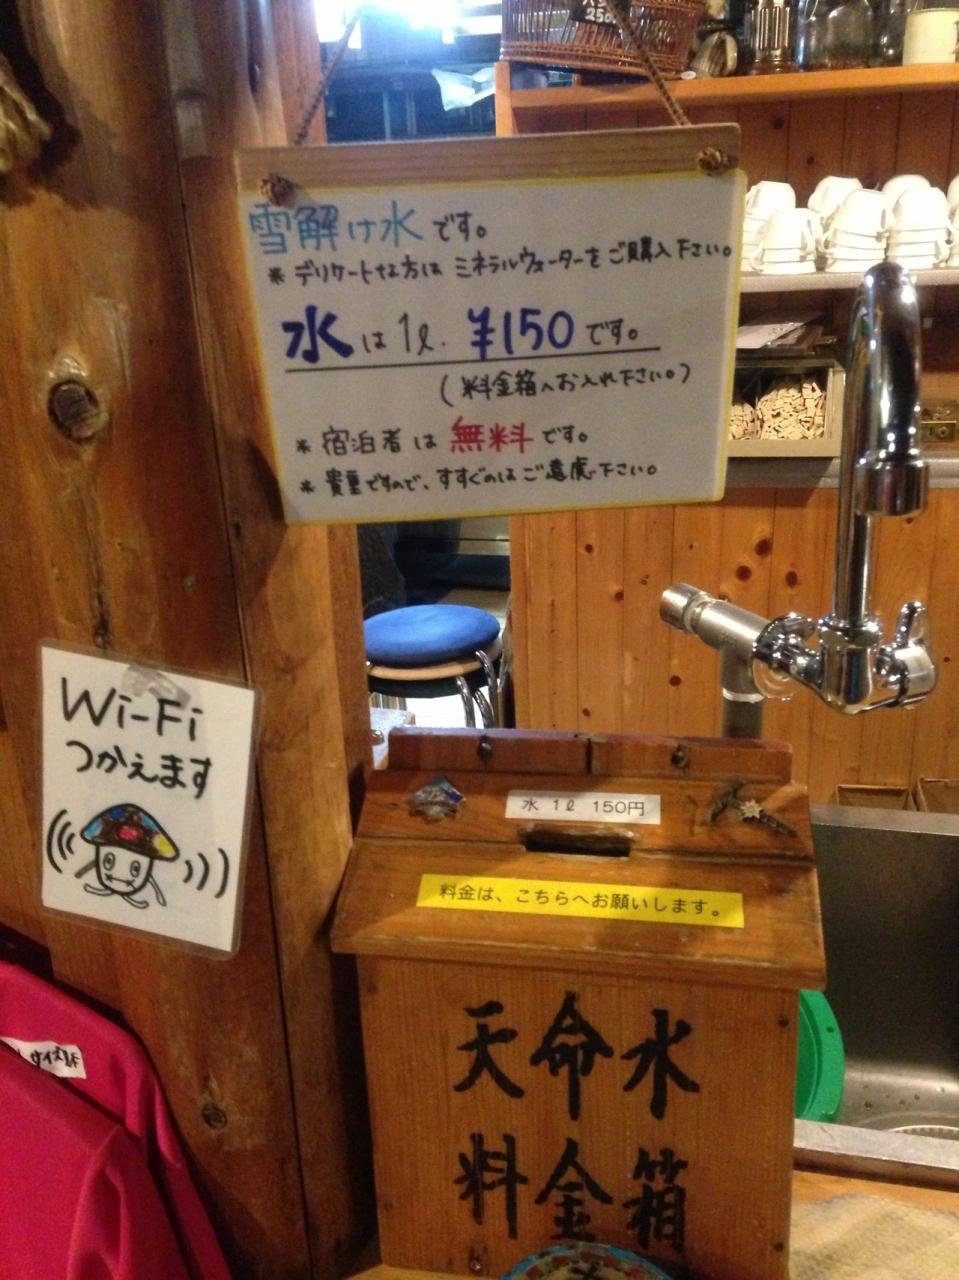 250
雪解け水です。
※デリケートな方はミネラルウォーターをご購入下さい。
水は1ℓ. ¥150です。
(料金箱へお入れ下さい。)
※宿泊者は無料です。
※貴重ですので、すすぐのはご遠慮下さい。
Wi-Fi
つかえます
水 1ℓ 150円
料金は、こちらへお願いします。
天命水
料金箱
サイズ